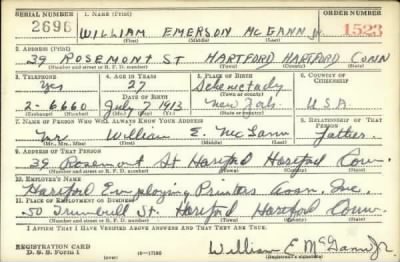 SERIAL NUMBER 1. NAME (Print) ORDER NUMBER
2696 WILLIAM EMERSON MC GANN Jr. 1523
(First) (Middle) (Last)
2. ADDRESS (Print)
39 ROSEMONT ST HARTFORD HARTFORD CONN
(Number and street or R. F. D. number) (Town) (County) (State)
3. TELEPHONE 4. AGE IN YEARS 5. PLACE OF BIRTH 6. COUNTRY OF CITIZENSHIP
Yes 27 Schenectady
DATE OF BIRTH (Town or county)
2-6660 July 7 1913 New York U.S.A.
(Exchange) (Number) (Mo.) (Day) (Yr.) (State or country)
7. NAME OF PERSON WHO WILL ALWAYS KNOW YOUR ADDRESS 8. RELATIONSHIP OF THAT PERSON
Mr. William E. McGann Father
(Mr., Mrs., Miss) (First) (Middle) (Last)
9. ADDRESS OF THAT PERSON
39 Rosemont St Hartford Hartford Conn.
(Number and street or R. F. D. number) (Town) (County) (State)
10. EMPLOYER'S NAME
Hartford Employing Printers Assn, Inc.
11. PLACE OF EMPLOYMENT OR BUSINESS
50 Trumbull St. Hartford Hartford Conn.
(Number and street or R. F. D. number) (Town) (County) (State)
I AFFIRM THAT I HAVE VERIFIED ABOVE ANSWERS AND THAT THEY ARE TRUE.
REGISTRATION CARD
D. S. S. Form 1 (over) 16—17105 William E McGann Jr
(Registrant's signature)